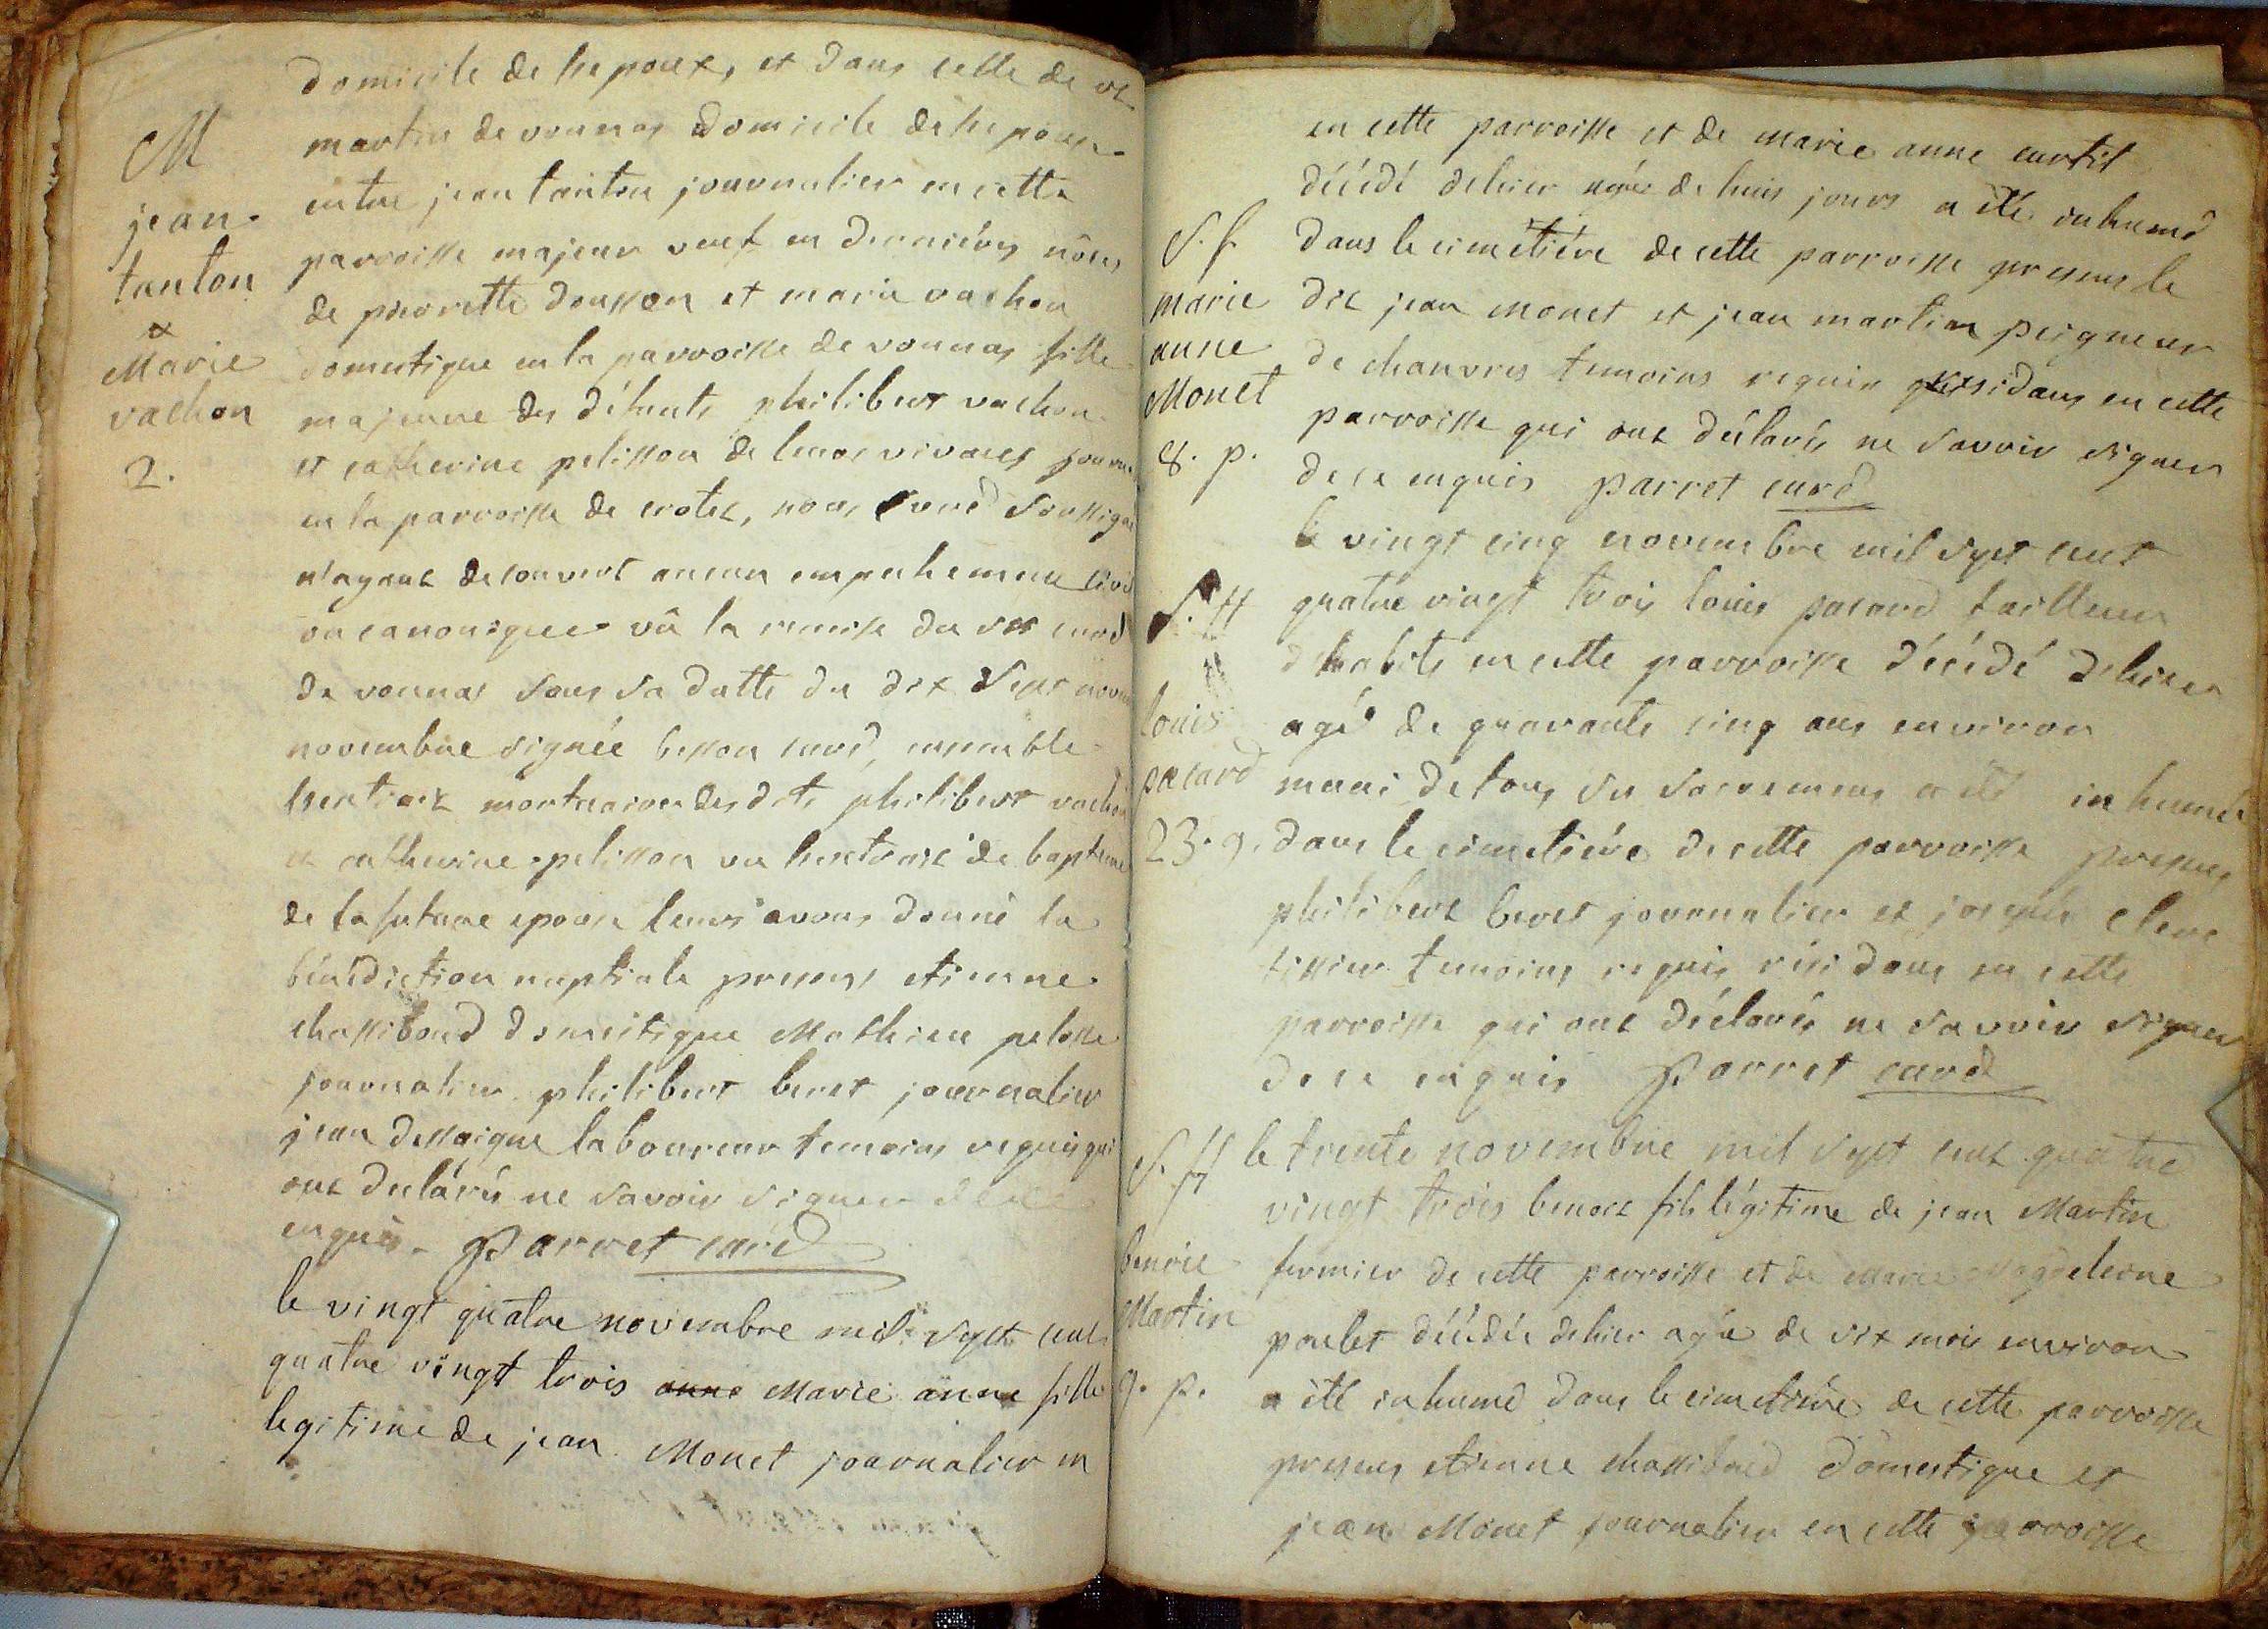 domicile de lhepoux, et dans celle de st
martin de vonnas domicile de lhepouse
M
entre jean tanton journalier en cette
jean
tanton
&
Marie
vachon
2.
parroisse majeur veuf en derniéres nôces
de pierrette dousson et marie vachon
domestique en la parroisse de vonnas fille
majeure des défunts philibert vachon
et catherine pelisson de leurs vivants
en la parroisse de crotet, nous curé soussigné
n'ayant decouvert aucun empechement civil
ou canonique vû la remise du sr curé
de vonnas sous sa datte du dix sept
novembre signée besson curé, ensemble
lhextrait mortuaires des dits philibert vachon
et catherine pelisson vu lhextrait de bapteme
de la future epouse leurs avons donné la
bénédiction nuptiale presens etienne
chassiboud domestique Mathieu pelosse
journalier philibert beret journalier
jean dessaigne laboureur temoins requis qui
ont declarés ne savoir signer de ce
enquis. Parret curé
le vingt quatre novembre mil sept cent
quatre vingt trois anne Marie anne fille
legitime de jean Monet journalier en
en cette parroisse et de marie anne curtil
décédé dehier agée de huis jours a été inhumé
S. f.
marie
anne
Monet
8. p.
dans le cimétiére de cette parroisse presens le
dit jean monet et jean martin peigneur
de chanvres temoins requis residans en cette
parroisse qui ont déclarés ne savoir signer
de ce enquis parret curé
le vingt cinq novembre mil sept cent
S. H
louis
pacard
23. g.
quatre vingt trois louis pacard tailleur
dhabits en cette parroisse décédé dehier
agé de quarante cinq ans environ
muni de tous ses sacremens a été inhumé
dans le cimetiére de cette parroisse presens
philibert beret journalier et joseph clere
tissier temoins requis résidans en cette
parroisse qui ont déclarés ne savoir signer
de ce enquis Parret curé
S. H
benoit
Martin
9. p.
le trente novembre mil sept cent quatre
vingt trois benoit fils légitime de jean Martin
fermier de cette parroisse et de marie Magdeleine
poulet décédée dehier agée de six mois environ
a été inhumé dans le cimetiére de cette parroisse
presens etienne chassiboud domestique et
jean Monet journalier en cette parroisse